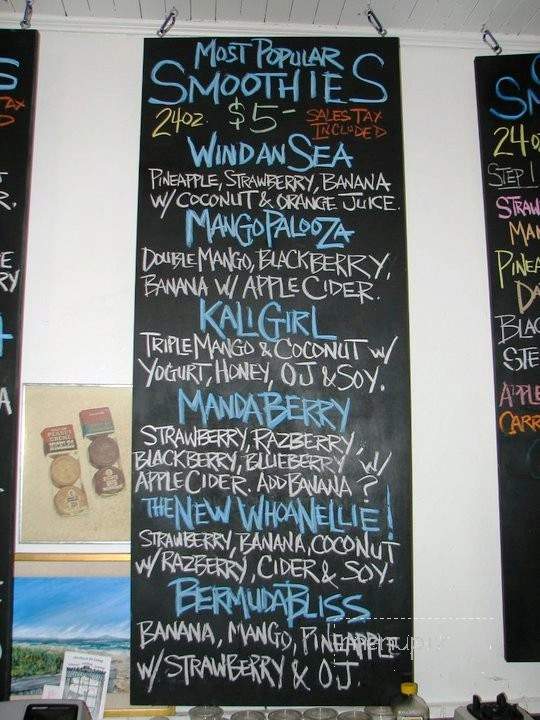 MOST POPULAR
SMOOTHIES
24OZ. $5- SALES TAX
INCLUDED
WINDANSEA
PINEAPPLE, STRAWBERRY, BANANA
W/ COCONUT & ORANGE JUICE.
MANGOPALOOZA
DOUBLE MANGO, BLACKBERRY,
BANANA W/ APPLE CIDER.
KALI GIRL
TRIPLE MANGO & COCONUT W/
YOGURT, HONEY, OJ & SOY.
MANDABERRY
STRAWBERRY, RAZBERRY,
BLACKBERRY, BLUEBERRY W/
APPLE CIDER. ADD BANANA?
THE NEW WHOANELLIE!
STRAWBERRY, BANANA, COCONUT
W/ RAZBERRY, CIDER & SOY.
BERMUDABLISS
BANANA, MANGO, PINEAPPLE
W/ STRAWBERRY & OJ.
24
STEP 1